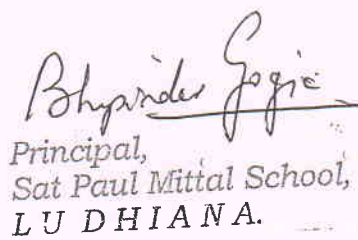 Bhupinder Gogia
Principal,
Sat Paul Mittal School,
L U D H I A N A.